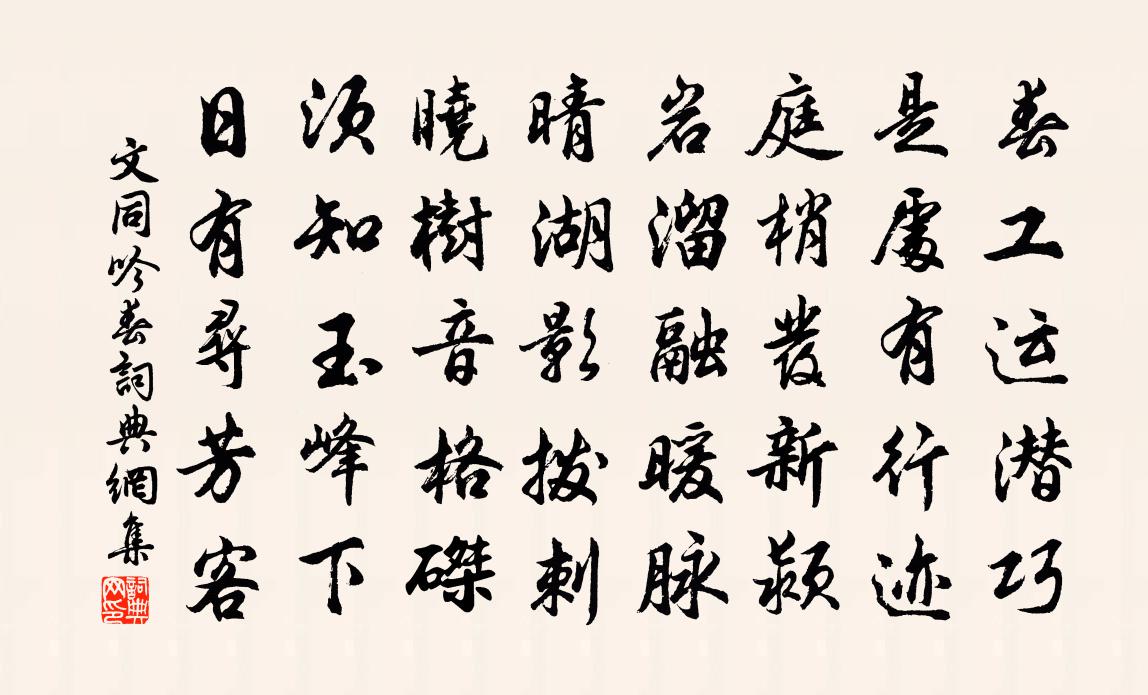 春工运潜巧
是處有行迹
庭梢發新颖
岩溜融暖脉
晴湖影拨刺
曉樹音格磔
須知玉峰下
日有尋芳客
文同吟春詞典網集
詞典网印